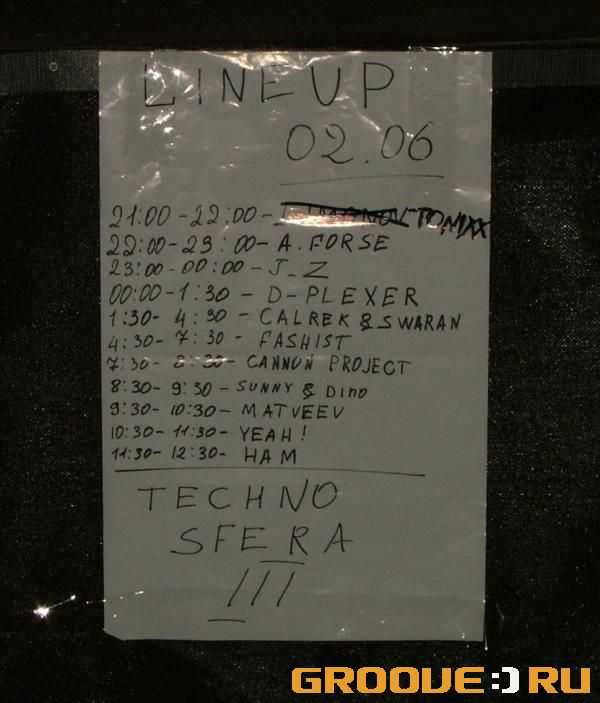 LINEUP
02.06
21:00-22:00- TOMIXX
22:00-23:00- A.FORSE
23:00-00:00-J_Z
00:00-1:30 - D-PLEXER
1:30- 4:30 - CALREK & SWARAN
4:30- 7:30 - FASHIST
7:30- 8:30- CANNON PROJECT
8:30- 9:30 - SUNNY & Dino
9:30- 10:30- MATVEEV
10:30- 11:30- YEAH!
11:30- 12:30- HAM
TECHNO
SFERA
III
GROOVE:RU